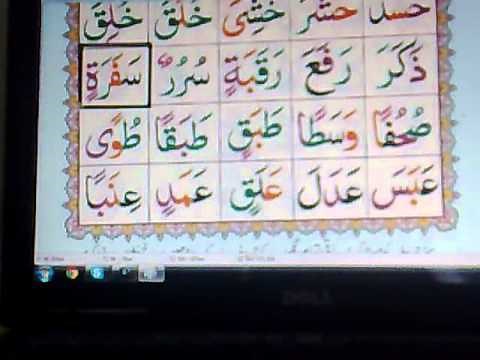 حَسَدَ حَشَرَ خَشِىَ خَلَقَ خُلِقَ
ذَكَرَ رَفَعَ رَقَبَةٍ سُرُرٌ سَفَرَةٍ
صُحُفًا وَسَطًا طَبَقٍ طَبَقًا طُوًى
عَبَسَ عَدَلَ عَلَقٍ عَمَدٍ عِنَبًا
DELL